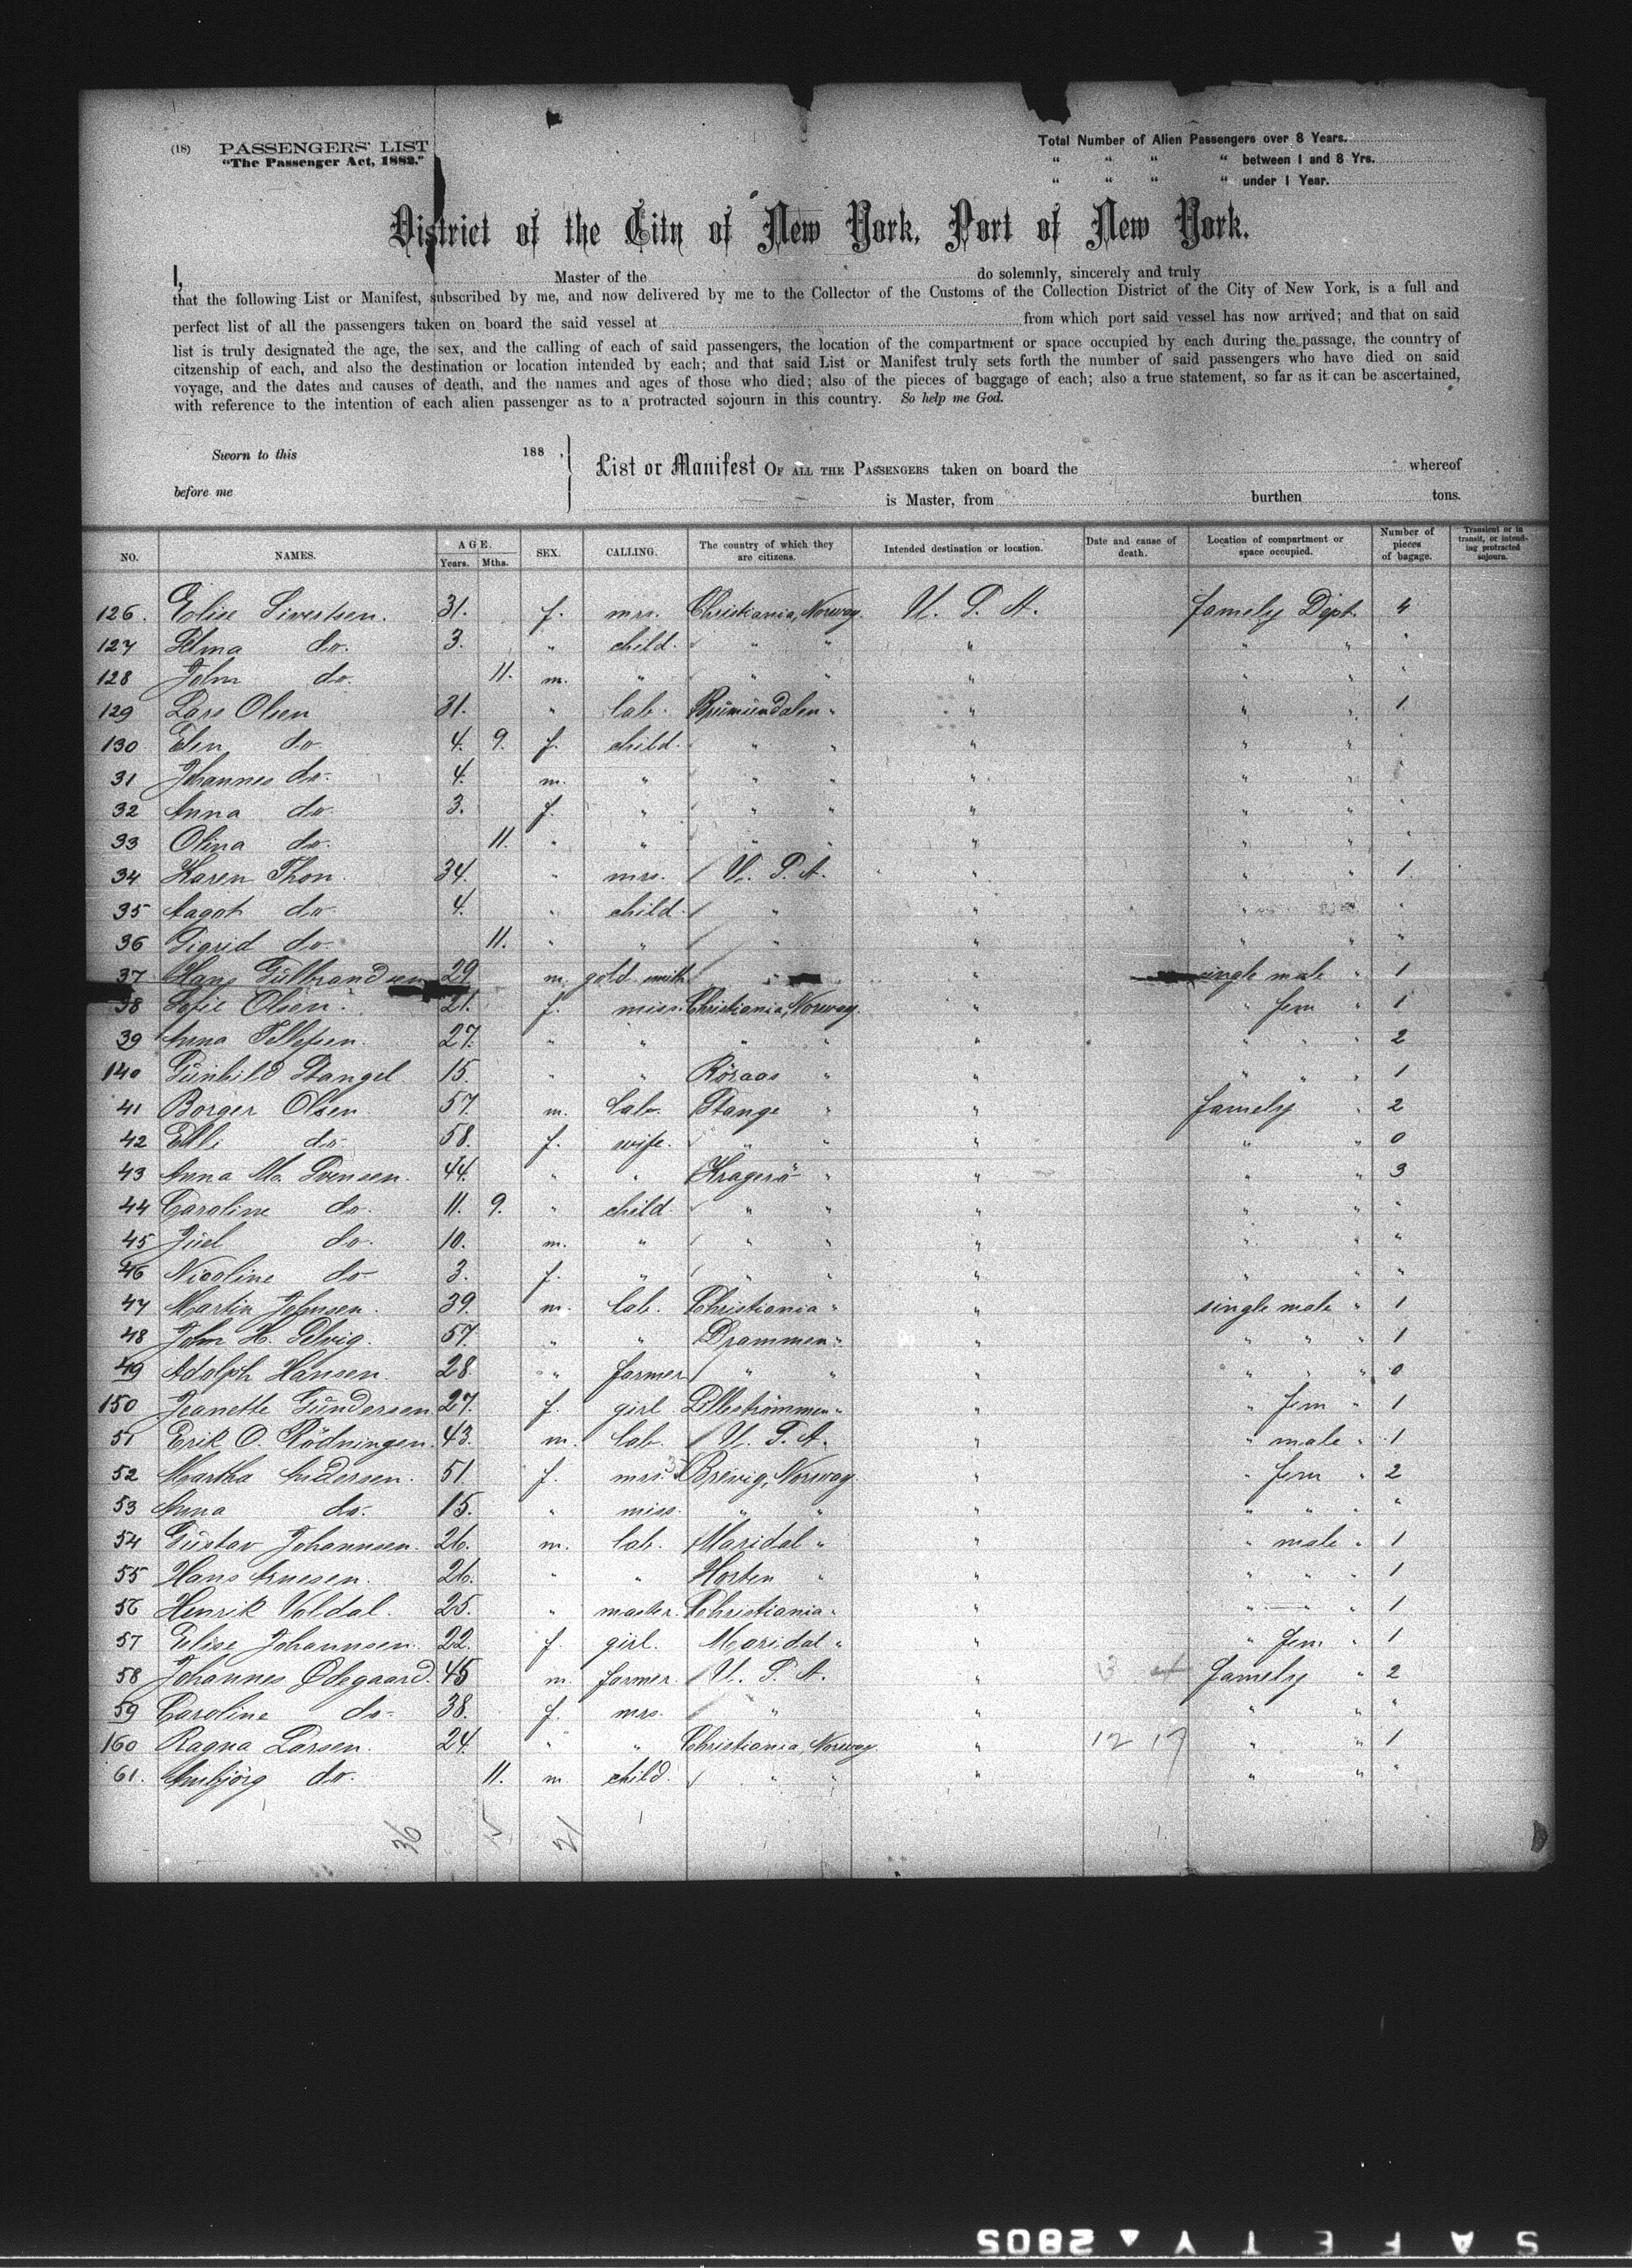 (18) PASSENGERS' LIST
"The Passenger Act, 1882."
Total Number of Alien Passengers over 8 Years.
" " " " between 1 and 8 Yrs.
" " " " under 1 Year.
District of the City of New York, Port of New York.
I, Master of the do solemnly, sincerely and truly
that the following List or Manifest, subscribed by me, and now delivered by me to the Collector of the Customs of the Collection District of the City of New York, is a full and
perfect list of all the passengers taken on board the said vessel at from which port said vessel has now arrived; and that on said
list is truly designated the age, the sex, and the calling of each of said passengers, the location of the compartment or space occupied by each during the passage, the country of
citzenship of each, and also the destination or location intended by each; and that said List or Manifest truly sets forth the number of said passengers who have died on said
voyage, and the dates and causes of death, and the names and ages of those who died; also of the pieces of baggage of each; also a true statement, so far as it can be ascertained,
with reference to the intention of each alien passenger as to a protracted sojourn in this country. So help me God.
Sworn to this 188 ,
before me
List or Manifest OF ALL THE PASSENGERS taken on board the whereof
is Master, from burthen tons.
NO. NAMES. AGE. Years. Mths. SEX. CALLING. The country of which they are citizens. Intended destination or location. Date and cause of death. Location of compartment or space occupied. Number of pieces of bagage. Transient or in transit, or intending protracted sojourn.
126. Elise Sivertsen. 31. f. mrs. Christiania, Norway. U. S. A. famely Dept. 4
127 Elma do. 3. " child. " " " " " "
128 John do. 11. m. " " " " " " "
129 Lars Olsen 31. " lab. Brumundalen " " " " 1
130 Elen do 4. 9. f. child. " " " " " "
31 Johannes do. 4. m. " " " " " " "
32 Anna do. 3. f. " " " " " " "
33 Olina do. 11. " " " " " " " "
34 Karen Thon. 34. " mrs. U. S. A. " " " 1
35 Aagot do 4. " child. " " " " "
36 Sigrid do 11. " " " " " " "
37 Hans Gulbrandsen 29 m. gold smith " " single male " 1
38 Sofie Olsen. 21. f. miss. Christiania, Norway. " " fem 1
39 Anna Tellefsen. 27. " " " " " " " " 2
140 Gunhild Stangel 15. " " Röraas " " " " " 1
41 Borger Olsen. 57. m. lab. Stange " " famely " 2
42 Elli do 58. f. wife. " " " " " 0
43 Anna M. Svensen. 44. " " Kragerö " " " " 3
44 Caroline do. 11. 9. " child " " " " " "
45 Juel do. 10. m. " " " " " " "
46 Nicoline do 3. f. " " " " " " "
47 Martin Johnsen. 39. m. lab. Christiania " " single male " 1
48 John H. Selvig. 57. " " Drammen " " " " " 1
49 Adolph Hansen. 28 " farmer " " " " " " 0
150 Jeanette Gundersen. 27. f. girl Lillestrømmen " " " fem " 1
51 Erik O. Rödningen. 43. m. lab. U. S. A. " " male " 1
52 Martha Andersen. 51. f. mrs. Brevig, Norway. " " fem " 2
53 Anna do. 15. " miss. " " " " " " "
54 Gustav Johannsen. 26. m. lab. Maridal " " " male " 1
55 Hans Arnesen. 26. " " Horten " " " " " 1
56 Henrik Voldal. 25. " master. Christiania " " " " " 1
57 Elise Johannsen. 22. f. girl. Maridal " " " fem " 1
58 Johannes Ödegaard. 45 m. farmer. U. S. A. " famely " 2
59 Caroline do- 38. f. mrs. " " " " "
160 Ragna Larsen. 24. " " Christiania, Norway. " 12 17 " " 1
61. Aubjörg do. 11. m child. " " " " " "
36 21
SAFETY ▲ 2805